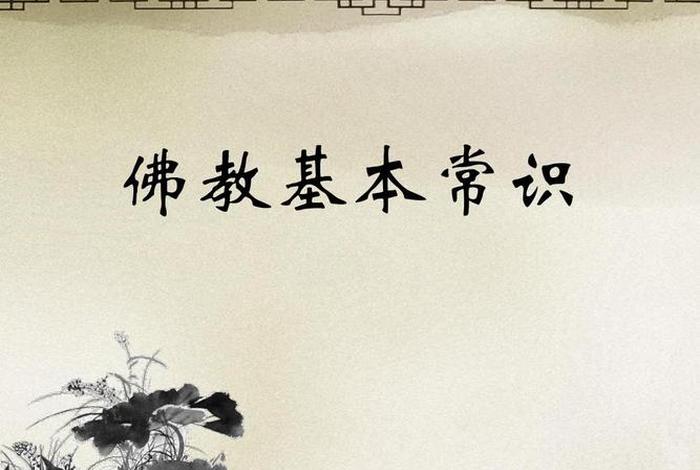 佛教基本常识